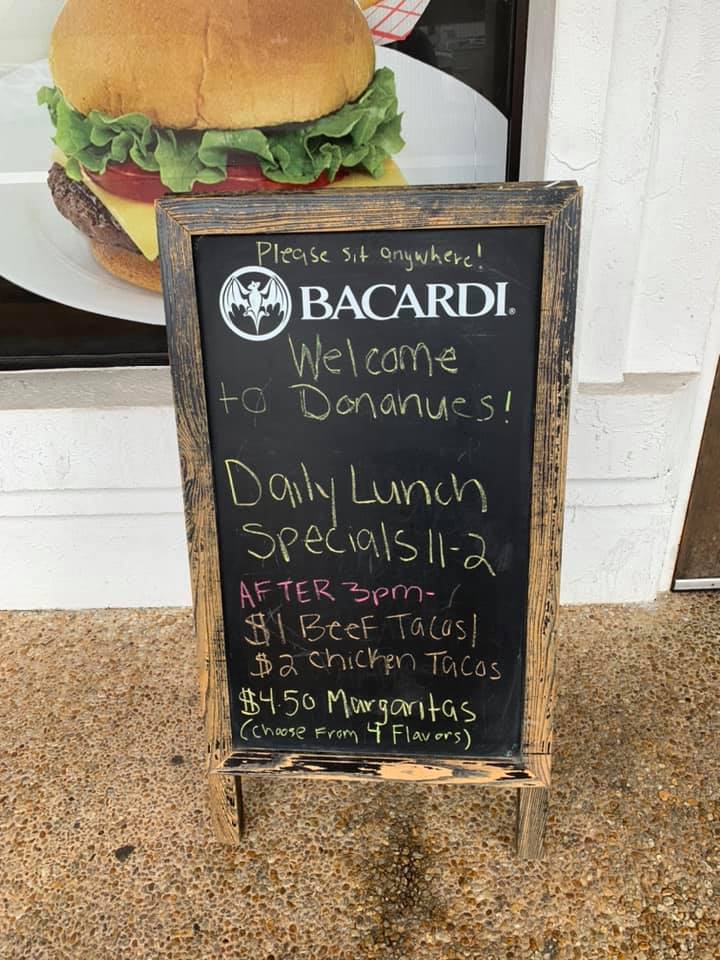 Please sit anywhere!
BACARDI.
Welcome
to Donahues!
Daily Lunch
Specials 11-2
AFTER 3pm-
$1 Beef Tacos/
$2 chicken Tacos
$4.50 Margaritas
(choose from 4 Flavors)